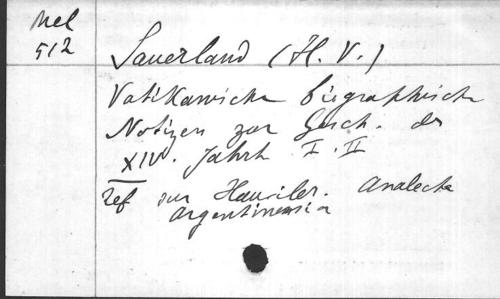 Mel
512
Sauerland (H. V.)
Vatikanische biographische
Notizen zur Gesch. des
XIV. Jahrh I. II
ref sur Hauviler. Analecta
Argentinensia